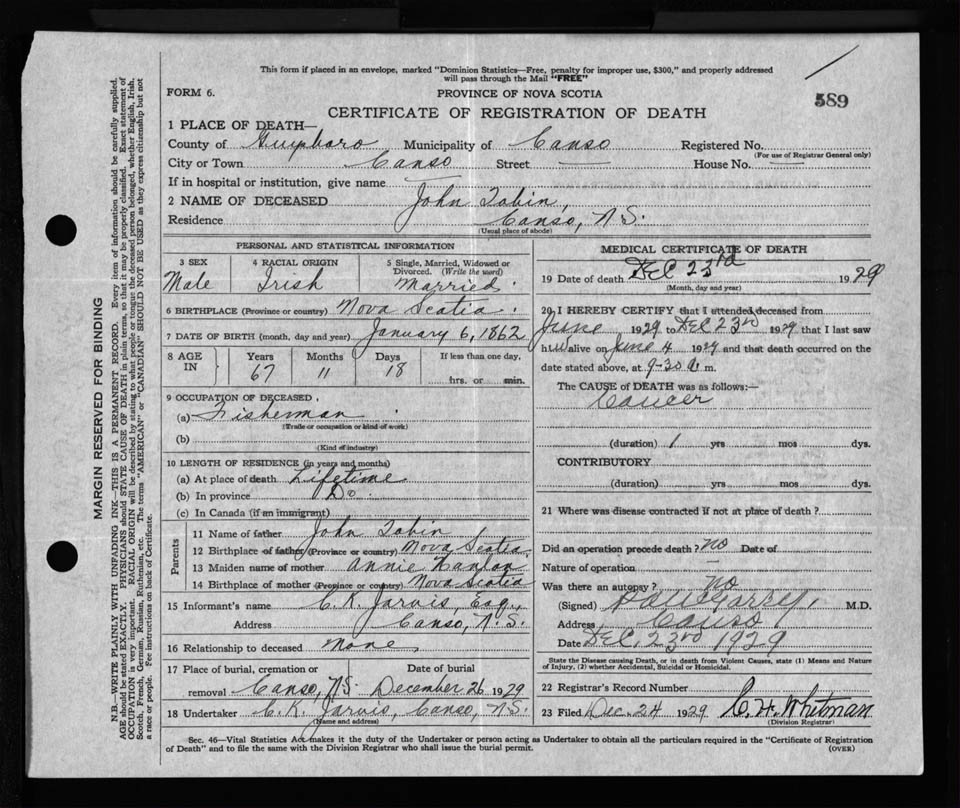 This form if placed in an envelope, marked "Dominion Statistics—Free, penalty for improper use, $300," and properly addressed
will pass through the Mail "FREE"
FORM 6.
PROVINCE OF NOVA SCOTIA
589
CERTIFICATE OF REGISTRATION OF DEATH
1 PLACE OF DEATH—
County of Guysboro Municipality of Canso Registered No.
(For use of Registrar General only)
City or Town Canso Street — House No. —
If in hospital or institution, give name —
2 NAME OF DECEASED John Tobin,
Residence Canso, N.S.
(Usual place of abode)
PERSONAL AND STATISTICAL INFORMATION
3 SEX
Male
4 RACIAL ORIGIN
Irish
5 Single, Married, Widowed or
Divorced. (Write the word)
Married.
6 BIRTHPLACE (Province or country) Nova Scotia.
7 DATE OF BIRTH (month, day and year) January 6, 1862
8 AGE
IN
Years
67
Months
11
Days
18
If less than one day,
hrs. or min.
9 OCCUPATION OF DECEASED
(a) Fisherman
(Trade or occupation or kind of work)
(b)
(Kind of industry)
10 LENGTH OF RESIDENCE (in years and months)
(a) At place of death Lifetime
(b) In province Do.
(c) In Canada (if an immigrant)
Parents
11 Name of father John Tobin
12 Birthplace of father (Province or country) Nova Scotia
13 Maiden name of mother Annie Hanlon
14 Birthplace of mother (Province or country) Nova Scotia
15 Informant's name C. K. Jarvis, Esq.,
Address Canso, N.S.
16 Relationship to deceased None
17 Place of burial, cremation or
removal Canso, N.S.
Date of burial
December 26 1929
18 Undertaker C. K. Jarvis, Canso, N.S.
(Name and address)
MEDICAL CERTIFICATE OF DEATH
19 Date of death DEC 23rd 1929
(Month, day and year)
20 I HEREBY CERTIFY that I attended deceased from
June 1929 to DEC 23rd 1929 that I last saw
him alive on June 4 1929 and that death occurred on the
date stated above, at 9-30 a.m.
The CAUSE of DEATH was as follows:—
Cancer
(duration) 1 yrs mos dys.
CONTRIBUTORY
(duration) yrs mos dys.
21 Where was disease contracted if not at place of death?
Did an operation precede death? no Date of
Nature of operation
Was there an autopsy? no
(Signed) M.D.
Address Canso
Date DEC, 23rd 1929
State the Disease causing Death, or in death from Violent Causes, state (1) Means and Nature
of Injury, (2) whether Accidental, Suicidal or Homicidal.
22 Registrar's Record Number
23 Filed Dec. 24 1929 C. H. Whitman
(Division Registrar)
Sec. 46—Vital Statistics Act makes it the duty of the Undertaker or person acting as Undertaker to obtain all the particulars required in the "Certificate of Registration
of Death" and to file the same with the Division Registrar who shall issue the burial permit.
(OVER)
MARGIN RESERVED FOR BINDING
N.B.—WRITE PLAINLY WITH UNFADING INK—THIS IS A PERMANENT RECORD. Every item of information should be carefully supplied.
AGE should be stated EXACTLY. PHYSICIANS should STATE CAUSE OF DEATH in plain terms, so that it may be properly classified. Exact statement of
OCCUPATION is very important. RACIAL ORIGIN will be described by stating to what people or tongue the deceased person belonged, whether English, Irish,
Scotch, French, German, Russian, Ruthenian, etc. The terms "AMERICAN" or "CANADIAN" SHOULD NOT BE USED as they express citizenship but not
a race or people. Fee instructions on back of Certificate.